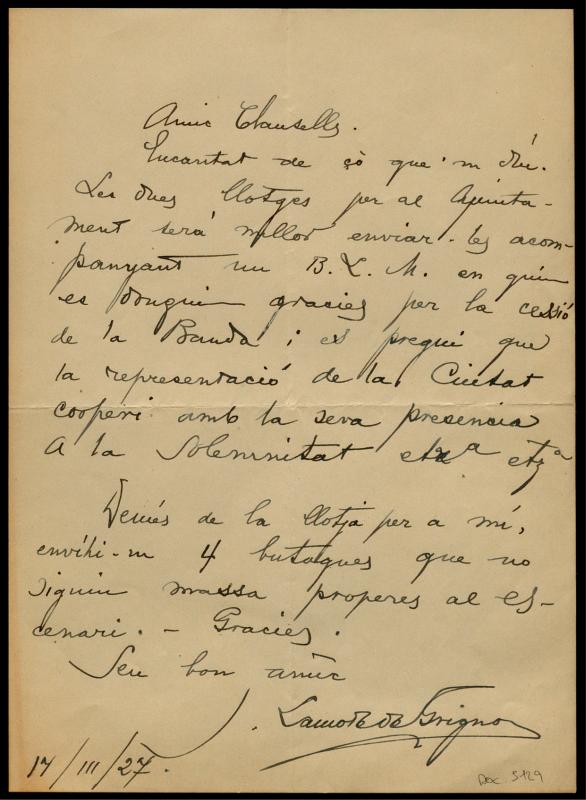 Amic Clausells.
Encantat de çò que'm diu.
Les dues llotges per al Ajunta-
ment será millor enviar-les acom-
panyant un B. L. M. en quin
es donguin gracies per la cessió
de la Banda i es pregui que
la representació de la Ciutat
cooperi amb la seva presencia
A la Solemnitat etzª etzª
Demés de la llotja per a mí,
envíhi-m 4 butaques que no
siguin massa properes al es-
cenari. - Gracies.
Seu bon amic
J. Lamote de Grignon
17/III/27.
Doc. 5129